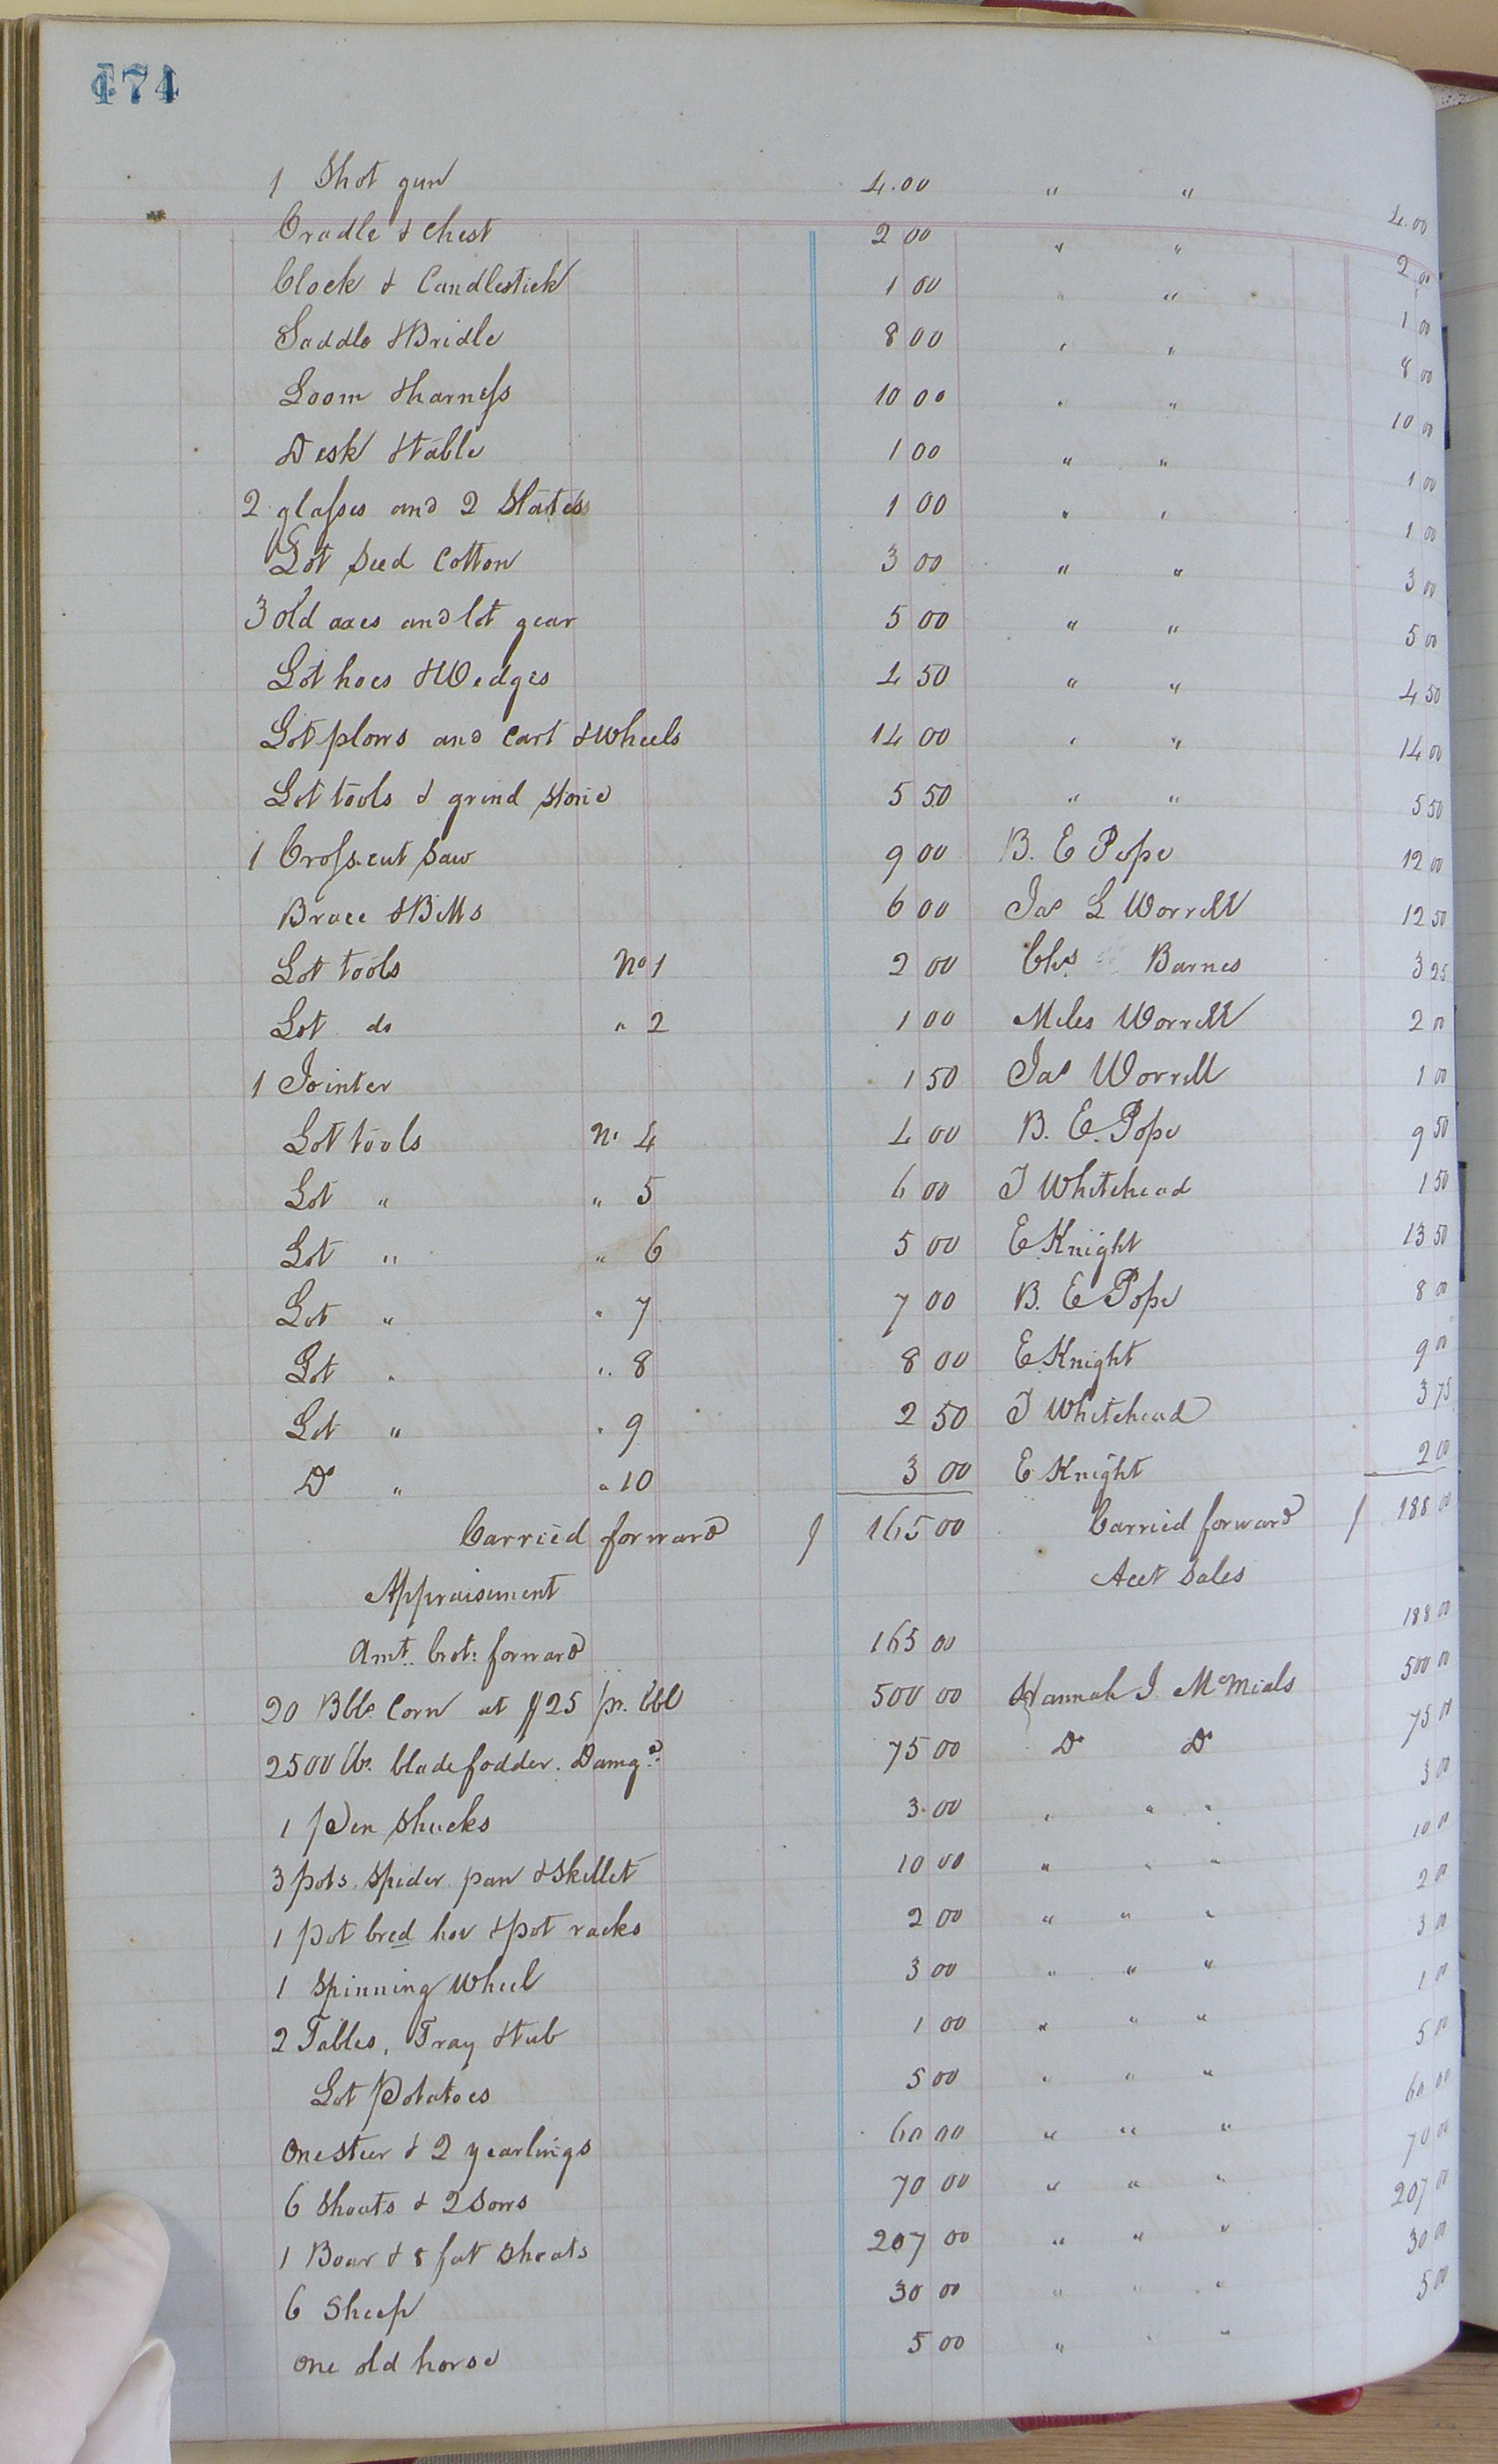 474
1 Shot gun 4.00 " " 4.00
Cradle & Chest 2 00 " " 2 00
Clock & Candlestick 1 00 " " 1 00
Saddle & Bridle 8 00 " " 8 00
Loom & harness 10 00 " " 10 00
Desk & table 1 00 " " 1 00
2 glasses and 2 Slates 1 00 " " 1 00
Lot Seed Cotton 3 00 " " 3 00
3 old axes and lot gear 5 00 " " 5 00
Lot hoes & Wedges 4 50 " " 4 50
Lot plows and Cart & Wheels 14 00 " " 14 00
Lot tools & grind Stone 5 50 " " 5 50
1 Cross.cut Saw 9 00 B. E Pope 12 00
Brace & Bitts 6 00 Jas L Worrell 12 50
Lot tools No 1 2 00 Chs Barnes 3 25
Lot do " 2 1 00 Miles Worrell 2 00
1 Jointer 1 50 Jas Worrell 1 00
Lot tools No 4 4 00 B. E. Pope 9 50
Lot " " 5 6 00 T Whitehead 1 50
Lot " " 6 5 00 E Knight 13 50
Lot " " 7 7 00 B. E Pope 8 00
Lot " " 8 8 00 E Knight 9 00
Lot " " 9 2 50 T Whitehead 3 75
Do " " 10 3 00 E Knight 2 00
Carried forward $ 165 00 Carried forward $ 188 00
Appraisement Acct Sales
Amt. brot: forward 165 00 188 00
20 Bbls Corn at $25 pr. bbl 500 00 Hannah J. McMials 500 00
2500 lbs. blade fodder. Damgd. 75 00 Do Do 75 00
1 Pen Shucks 3.00 " " " 3 00
3 pots. Spider pan & Skillet 10 00 " " " 10 00
1 pot bred hoe & pot racks 2 00 " " " 2 00
1 Spinning Wheel 3 00 " " " 3 00
2 Tables, Tray & tub 1 00 " " " 1 00
Lot Potatoes 5 00 " " " 5 00
One Steer & 2 yearlings 60 00 " " " 60 00
6 Shoats & 2 Sows 70 00 " " " 70 00
1 Boar & 8 fat Shoats 207 00 " " " 207 00
6 Sheep 30 00 " " " 30 00
one old horse 5 00 " " " 5 00